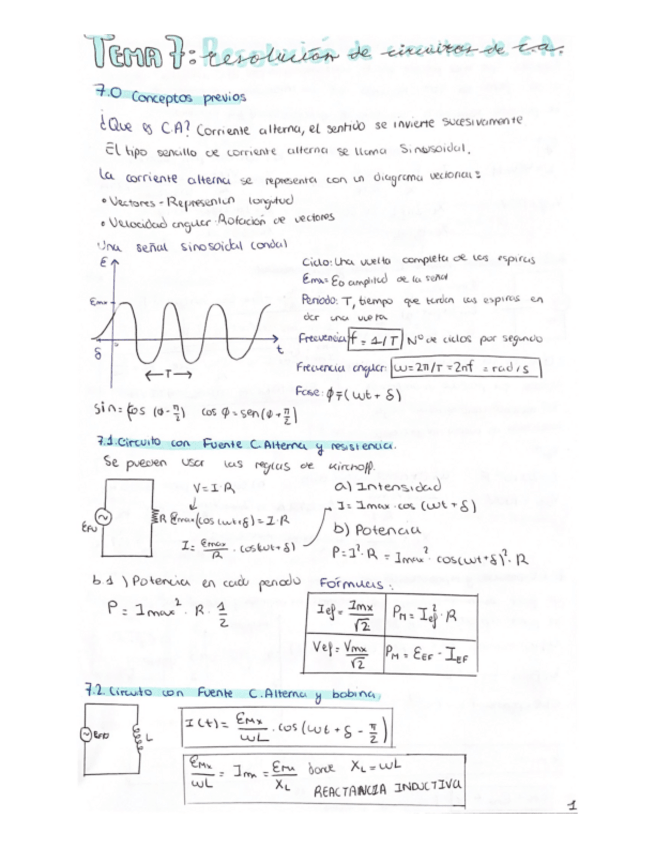 TEMA 7: resolución de circuitos de c.a.
7.0 Conceptos previos
¿Que es C.A? Corriente alterna, el sentido se invierte sucesivamente
El tipo sencillo de corriente alterna se llama Sinusoidal.
La corriente alterna se representa con un diagrama vectorial:
• Vectores - Representan longitud
• Velocidad angular: Rotación de vectores
Una señal sinosoidal (onda)
Ciclo: Una vuelta completa de las espiras
Emax: Es amplitud de la señal
Periodo: T, tiempo que tardan las espiras en
dar una vuelta
Frecuencia f = 1/T Nº de ciclos por segundo
Frecuencia angular: ω = 2π/T = 2πf = rad/s
Fase: ϕ = (ωt + δ)
E
Emax
δ
t
← T →
sin = cos (ϕ - π/2) cos ϕ = sen(ϕ + π/2)
7.1. Circuito con Fuente C. Alterna y resistencia.
Se pueden usar las reglas de Kirchoff.
V = I · R
R
Emax (cos ωt + δ) = I · R
I = Emax/R · cos(ωt + δ)
a) Intensidad
I = Imax · cos (ωt + δ)
b) Potencia
P = I² · R = Imax² · cos(ωt + δ)² · R
b.1) Potencia en cada periodo
P = Imax² · R · 1/2
Fórmulas:
Ief = Imx/√2 PM = Ief² · R
Vef = Vmx/√2 PM = EEF · IEF
7.2. Circuito con Fuente C. Alterna y bobina,
L
I(t) = EMx/ωL · cos (ωt + δ - π/2)
EMx/ωL = Imx = EMx/XL donde XL = ωL
REACTANCIA INDUCTIVA
1